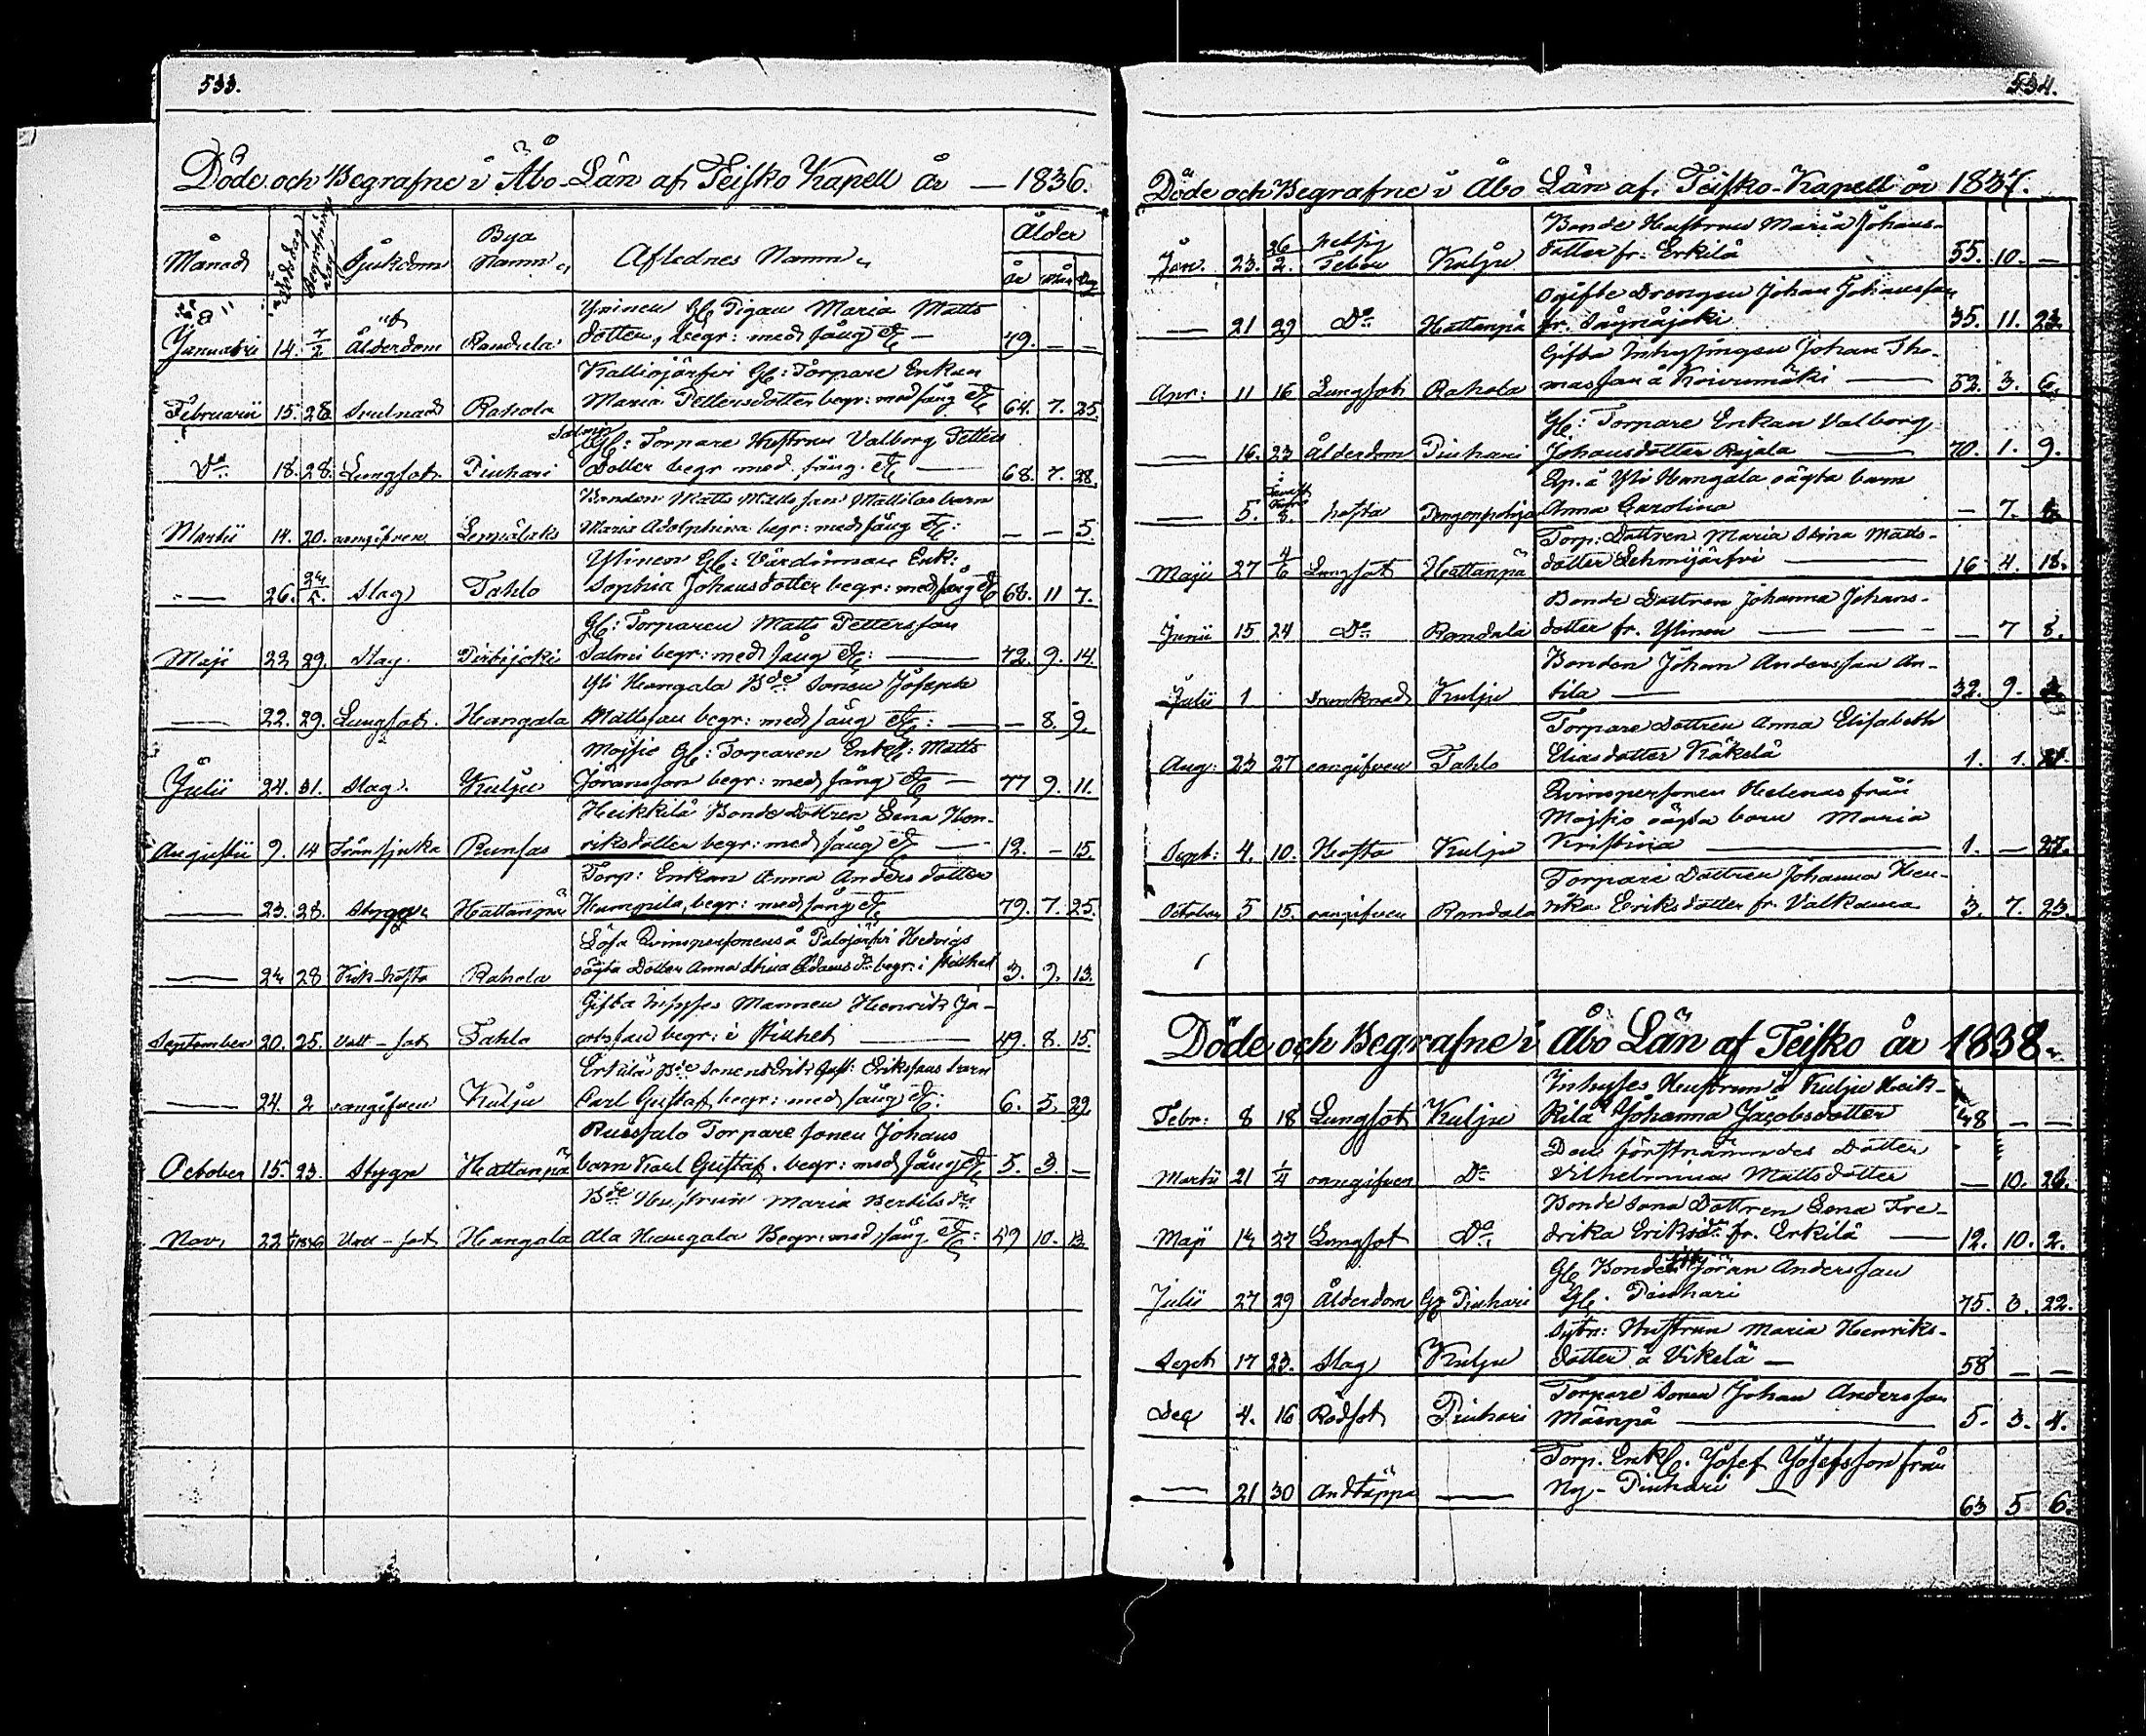 533.
Döde och Begrafne i Åbo Län af Teisko Kapell år — 1836.
Månad Dödsdag Begrafnings dag Sjukdom Bya Namn Aflednes Namn Ålder
år Mån Dag
Yninen Gl. Pigan Maria Matts
Januarii 14. 7/2 Ålderdom Randula dotter, begr: med sång &c — 79. — —
Kalliojärfvi Gl: Torpare Enkan
Februarii 15. 28. Svulnad Rahola Maria Pettersdotter begr: med sång &c 64. 7. 25.
Salmin Gl: Torpare Hustrun Valborg Petters
Do 18. 28. Lungsot. Piuhari Dotter begr med sång. &c — 68. 7. 28.
Bonden Matts Matts son Mattilas barn
Martii 14. 20. oangifven Lemiälaks Maria Adolphina begr: med sång &c: — — 5.
Ylinen Gl: Värdinnan Enk:
— 26. Slag Tahlo Sophia Johansdotter begr: med sång &c 68. 11 7.
Gl: Torparen Matts Pettersson
Maji 22 29. Slag. Pirtijoki Salmi begr: med sång &c: — 72. 9. 14.
Yli Hangala Bde Sonen Joseph
— 22. 29. Lungsot. Hangala Mattsson begr: med sång &c: — — 8. 9.
Moisio Gl: Torparen Enkl: Matts
Julii 24. 31. Slag. Kulju Jöransson begr: med sång &c — 77 9. 11.
Heikkilä Bonde Dottren Lena Hen-
Augustii 9. 14 Tränsjuka Runsas riksdotter begr: med sång &c — 12. — 15.
Torp: Enkan Anna Anders dotter
— 23. 28. Hattanpä Humpila, begr: med sång &c 79. 7. 25.
Lösa Qvinspersonens å Palojärfvi Hedvigs
— 24 28 Kik-hosta Rahola oägta Dotter Anna Stina Adams dr. begr: i stillhet 3. 9. 13.
Gifta Inhyses Mannen Henrik Ja-
September 20. 25. Vatt-sot Tahlo cobsson begr: i stillhet — 49. 8. 15.
Erkilä Bde Sonens Erik Gust: Erikssons barn
— 24. 2 oangifven Kulju Carl Gustaf begr: med sång &c: 6. 5. 29.
Russalo Torpare Sonen Johans
October 15. 23. Stygn Hattanpä barn Karl Gustaf. begr: med sång &c 5. 3. —
Bde Hustrun Maria Bertils dr.
Nov. 22 Vatt-sot Hangala Ala Hangala Begr: med sång &c: 49 10. 13.
534.
Döde och Begrafne i Åbo Län af Teisko-Kapell år 1837.
Bonde Hustrun Maria Johans-
Jan. 23. 26/2. Feber Kulju dotter fr. Erkilä 55. 10. —
Ogifte Drengen Johan Johansson
— 21 29 Do Hattanpä fr. 35. 11. 23.
Gifta Inhysingen Johan Tho-
Apr: 11 16 Lungsot Rahola masson å Koivumäki — 52. 3. 6.
Gl: Torpare Enkan Valborg
— 16. 23 Ålderdom Piuhari Johansdotter Rajala — 70. 1. 9.
Qp. å Yli Hangala oägta barn
— 5. 8. hosta Pengonpohja Anna Carolina — 7.
Torp: Dottren Maria Stina Matts-
Maji 27 4/6 Lungsot Hattanpä dotter Lehmijärfvi — 16. 4. 18.
Bonde Dottren Johanna Johans-
Junii 15 24 Do Randala dotter fr. Ylinen — — 7 8.
Bonden Johan Andersson An-
Julii 1 Drunknad Kulju tila — 32. 9.
Torpare Dottren Anna Elisabeth
Aug: 23 27 oangifven Tahlo Eliasdotter Käkelä 1. 1. 21.
Qvinspersonen Helenas från
Moisio oägta barn Maria
Sept: 4. 10. Hosta Kulju Kristina — 1. — 27.
Torpare Dottren Johanna Hen-
October 5 15. oangifven Randala rika Eriksdotter fr. Valkama 3. 7. 23.
Döde och Begrafne i Åbo Län af Teisko år 1838.
Inhyses Hustrun å Kulju Heik-
Febr: 8 18 Lungsot Kulju kilä Johanna Jacobsdotter 48 — —
Den förstnämndes Dotter
Martii 21 1/4 oangifven Do Vilhelmina Mattsdotter — 10. 26.
Bonde Sona Dottren Lena Fre-
Maji 14 27 Lungsot Do drika Eriksdr. fr. Erkilä — 12. 10. 2.
Gl Bonden Jöran Andersson
Julii 27 29 Ålderdom Gl Piuhari Gl. Piuhari 75. 3. 22.
Sytn: Hustrun Maria Henriks-
Sept 17 23. Slag Kulju dotter å Vikelä — 58 — —
Torpare Sonen Johan Andersson
Dec 4. 16 Rödsot Piuhari Mäenpä — 5. 3. 4.
Torp. Enkl. Josef Josefsson från
— 21 30 Andtäppa — Ny-Piuhari — 63 5 6.